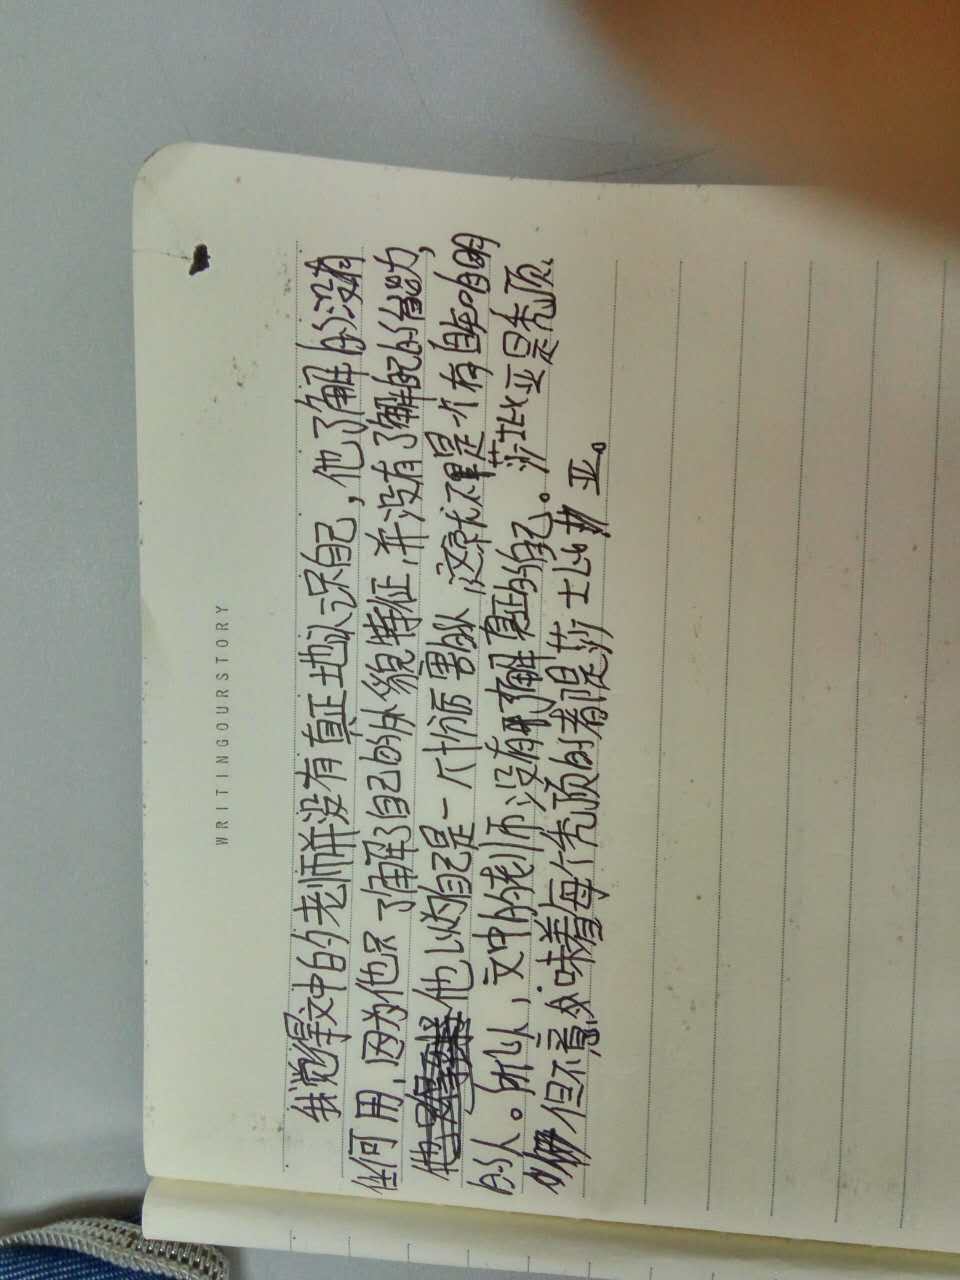 WRITINGOURSTORY
我觉得文中的老师并没有真正地认识自己，他了解的没有
任何用，因为他只了解了自己的外貌特征，并没有了解自己的能力，
他以为自己是一个十分厉害的人，这就不是一个有自知自明
的人。所以，文中的老师没有了解真正的自己。莎士比亚是秃顶、
但不意味着每个秃顶的都是莎士比亚。